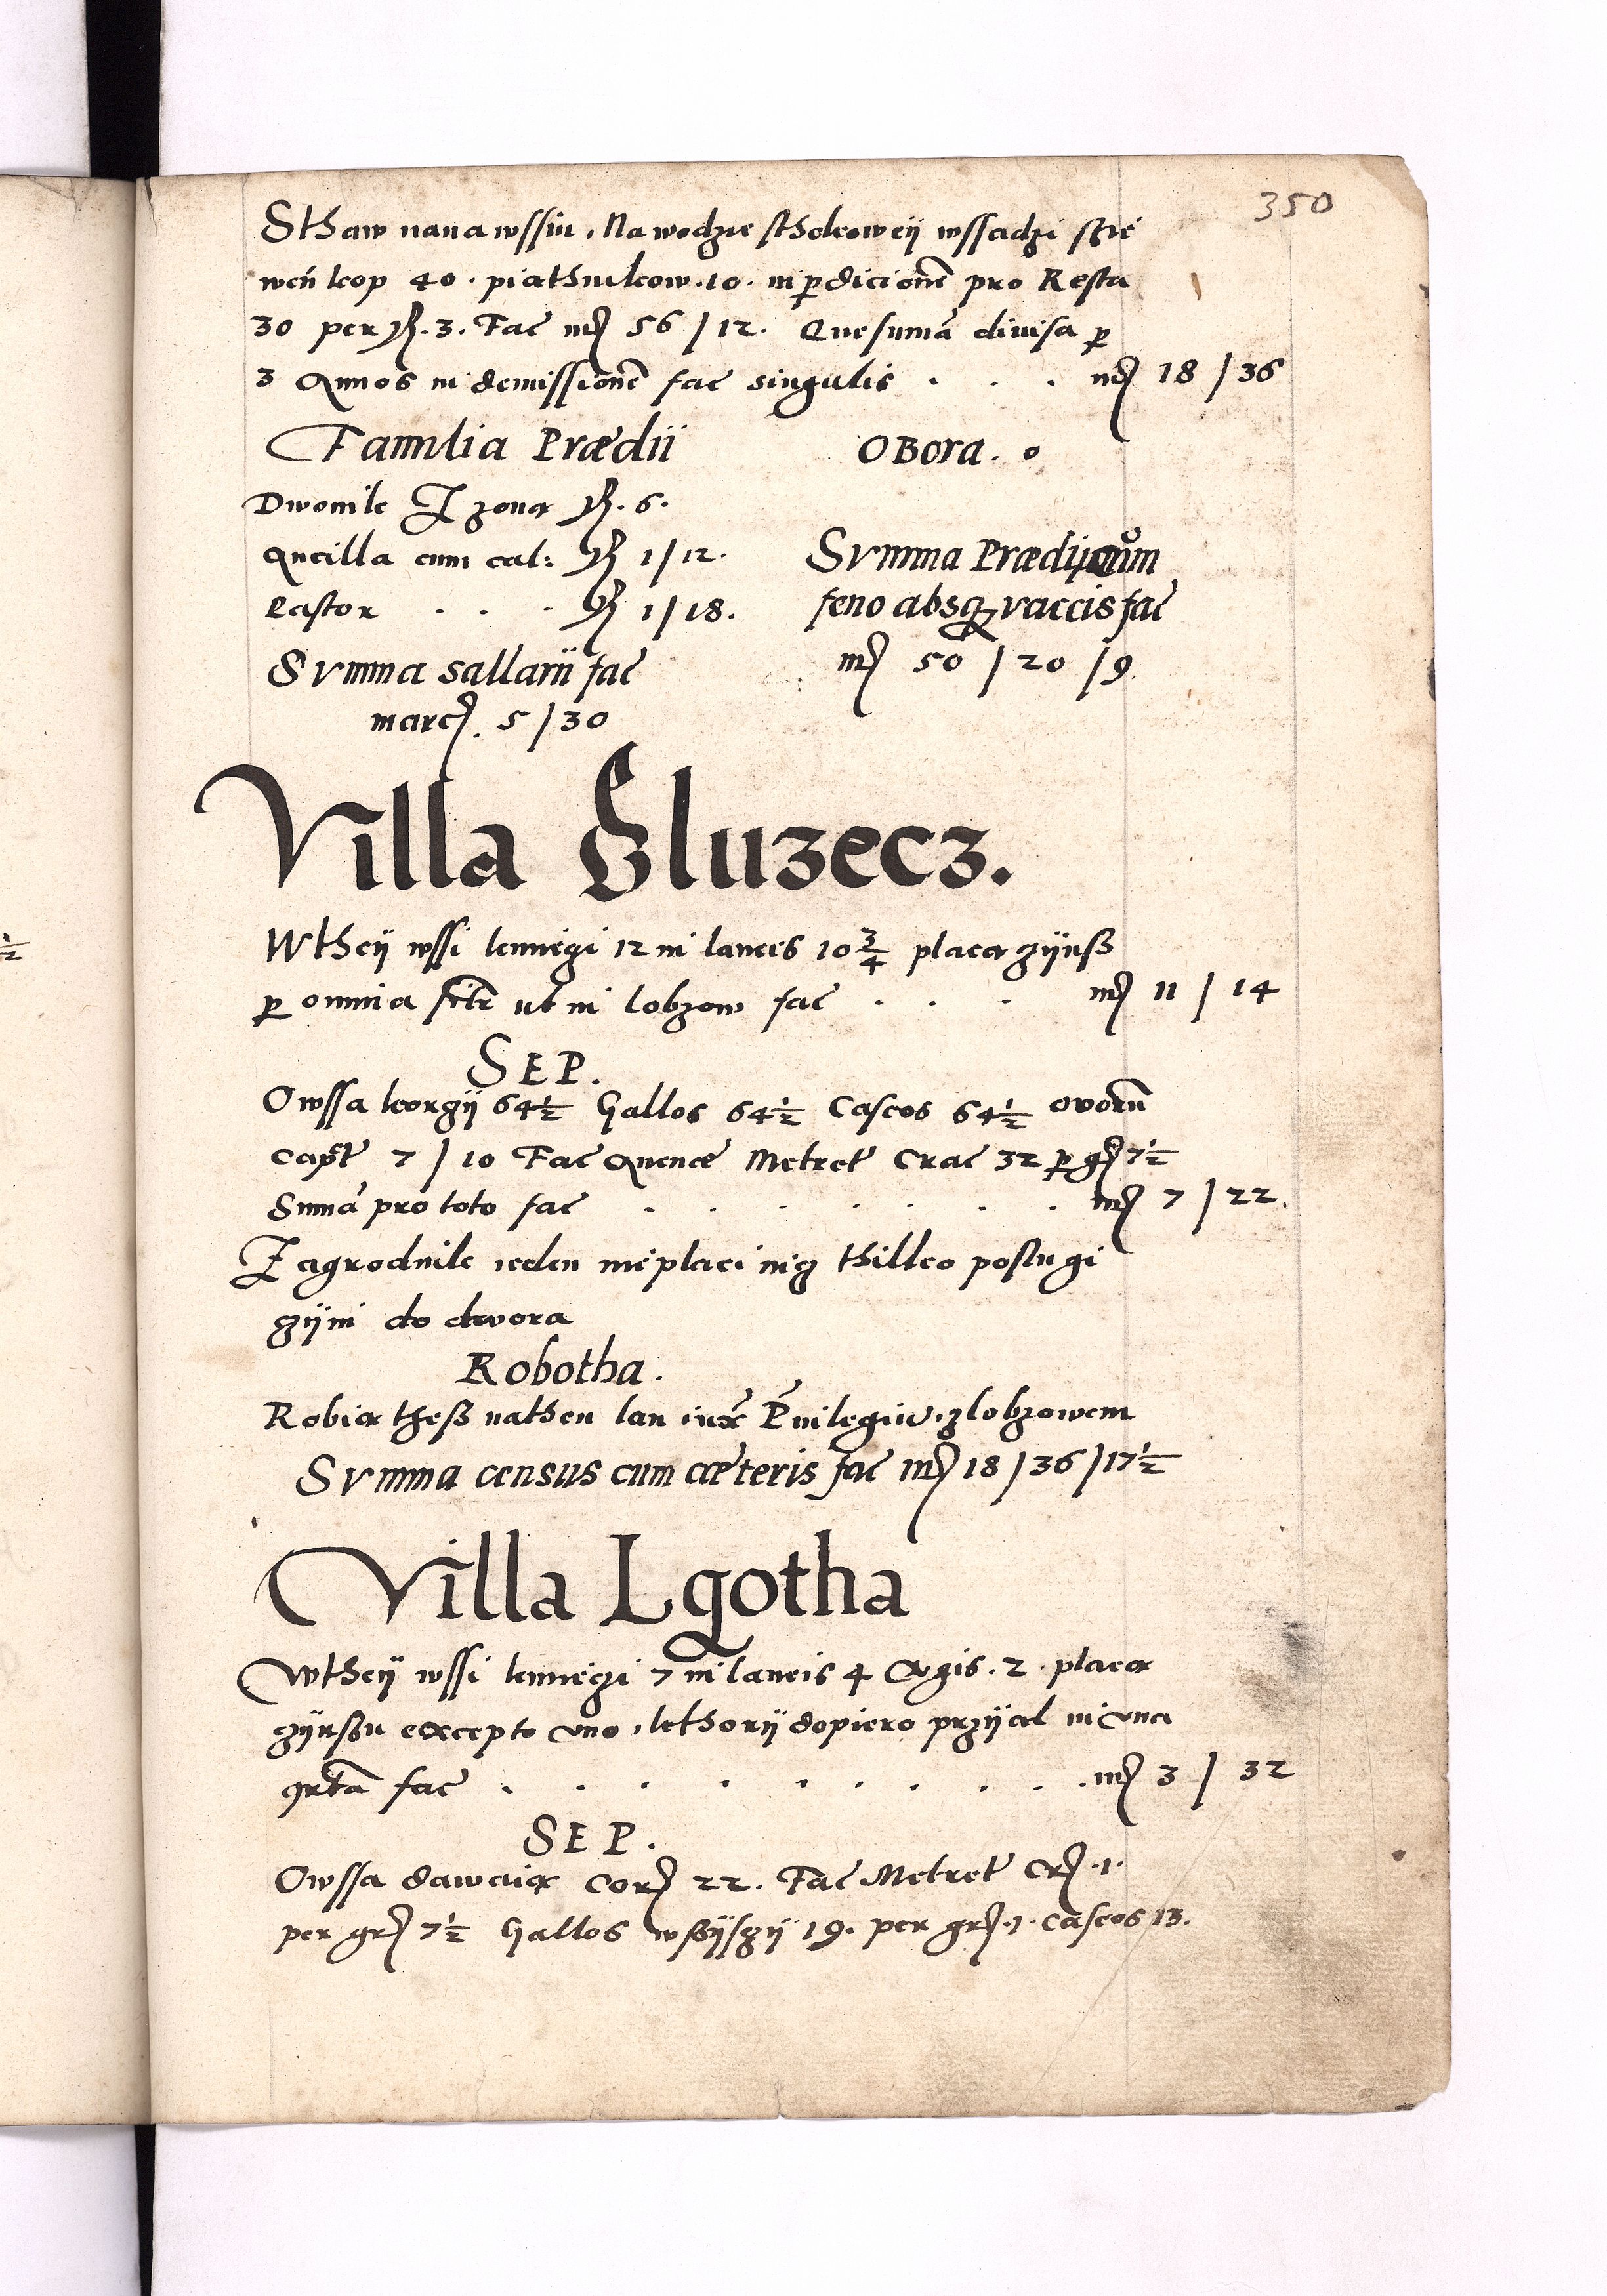 350
Sthaw nanawssiu. Na wodzie sthokowey wssadzi scie
weń kop 40. piathnikow. 10. in perdicionē pro Resta
30 per ffl. 3. Fac mrc 56 / 12. Que sumā divisa p
3 Annos in demissionē fac singulis . . . mrc 18 / 36
Familia Prædii OBora. 0
Dwornik Z zoną fl. 6.
Ancilla cum cal: fl 1/12.
Pastor . . . fl 1/18.
Svmma sallarii fac
marc. 5 / 30
Svmma Prædii cum
feno absq vaccis fac
mrc 50 / 20 / 9.
Villa Sluzecz.
Wthey wssi kmiegi 12 in laneis 10 3/4 placą czynß
p omnia ut in lobzow fac . . . mrc 11 / 14
SEP.
Owssa korczy 64 1/2 Gallos 64 1/2 Caseos 64 1/2 ovorū
Capt 7 / 10 Fac Avenæ Metret Crac 32 p gr 7 1/2
Sumā pro toto fac . . . . . . . mrc 7 / 22.
Zagrodnik ieden nieplaci nicz thilko poslugi
czyni do dwora
Robotha.
Robią thesß nathen lan iux Privilegiū zlobzowem
Svmma census cum cæteris fac mrc 18 / 36 / 17 1/2
Villa Lgotha
Wthey wssi kmieczi 7 in laneis 4 Agris. 2. placą
czynßu excepto uno, kthory dopiero przyial in una
qrta fac . . . . . . . . . . mrc 3 / 32
SEP.
Owssa dawaią Cor 22. Fac Metret Cr. 1.
per gr 7 1/2 Gallos wßysczy 19. per gr. 1. Caseos 13.